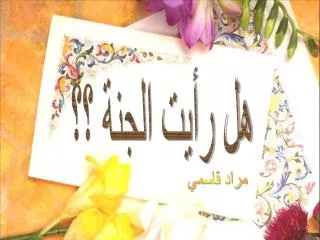 هل رأيت الجنة ؟؟
مراد قاسمي